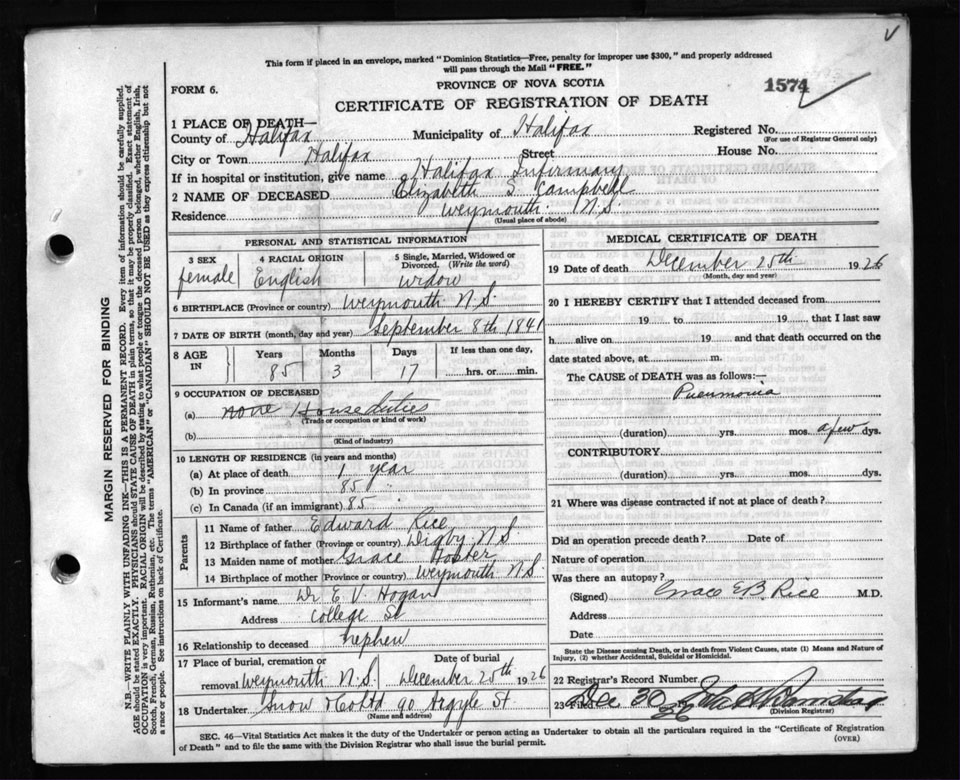 This form if placed in an envelope, marked "Dominion Statistics—Free, penalty for improper use $300," and properly addressed
will pass through the Mail "FREE."
PROVINCE OF NOVA SCOTIA
FORM 6.
1574
CERTIFICATE OF REGISTRATION OF DEATH
1 PLACE OF DEATH—
County of Halifax Municipality of Halifax Registered No.
(For use of Registrar General only)
City or Town Halifax Street House No.
If in hospital or institution, give name Halifax Infirmary
2 NAME OF DECEASED Elizabeth S Campbell
Residence Weymouth N.S.
(Usual place of abode)
PERSONAL AND STATISTICAL INFORMATION
3 SEX 4 RACIAL ORIGIN 5 Single, Married, Widowed or
Divorced. (Write the word)
female English widow
6 BIRTHPLACE (Province or country) Weymouth N.S.
7 DATE OF BIRTH (month, day and year) September 8th 1841
8 AGE IN Years Months Days If less than one day,
85 3 17 hrs. or min.
9 OCCUPATION OF DECEASED
(a) none House duties
(Trade or occupation or kind of work)
(b)
(Kind of industry)
10 LENGTH OF RESIDENCE (in years and months)
(a) At place of death 1 year
(b) In province 85
(c) In Canada (if an immigrant) 85
Parents
11 Name of father Edward Rice
12 Birthplace of father (Province or country) Digby N.S.
13 Maiden name of mother Grace
14 Birthplace of mother (Province or country) Weymouth N.S.
15 Informant's name Dr E V Hogan
Address College St
16 Relationship to deceased nephew
17 Place of burial, cremation or Date of burial
removal Weymouth N.S. December 25th 1926
18 Undertaker Snow & Co Ltd 90 Argyle St
(Name and address)
MEDICAL CERTIFICATE OF DEATH
19 Date of death December 25th 1926
(Month, day and year)
20 I HEREBY CERTIFY that I attended deceased from
19 to 19 that I last saw
h alive on 19 and that death occurred on the
date stated above, at m.
The CAUSE of DEATH was as follows:—
Pneumonia
(duration) yrs. mos. a few dys.
CONTRIBUTORY
(duration) yrs. mos. dys.
21 Where was disease contracted if not at place of death?
Did an operation precede death? Date of
Nature of operation
Was there an autopay?
(Signed) Grace E.B. Rice M.D.
Address
Date
State the Disease causing Death, or in death from Violent Causes, state (1) Means and Nature of
Injury, (2) whether Accidental, Suicidal or Homicidal.
22 Registrar's Record Number
23 Dec 30
(Division Registrar)
SEC. 46—Vital Statistics Act makes it the duty of the Undertaker or person acting as Undertaker to obtain all the particulars required in the "Certificate of Registration
of Death" and to file the same with the Division Registrar who shall issue the burial permit.
(OVER)
MARGIN RESERVED FOR BINDING
N.B.—WRITE PLAINLY WITH UNFADING INK—THIS IS A PERMANENT RECORD. Every item of information should be carefully supplied.
AGE should be stated EXACTLY. PHYSICIANS should STATE CAUSE OF DEATH in plain terms, so that it may be properly classified. Exact statement of
OCCUPATION is very important. RACIAL ORIGIN will be described by stating to what people or tongue the deceased person belonged, whether English, Irish,
Scotch, French, German, Russian, Ruthenian, etc. The terms "AMERICAN" or "CANADIAN" SHOULD NOT BE USED as they express citizenship but not
a race or people. See instructions on back of Certificate.